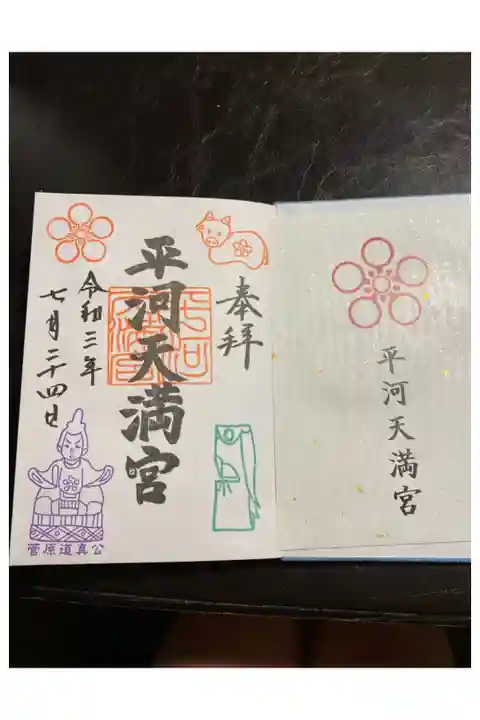 奉拝
平河天満宮
令和三年
七月二十四日
菅原道真公
平河天満宮